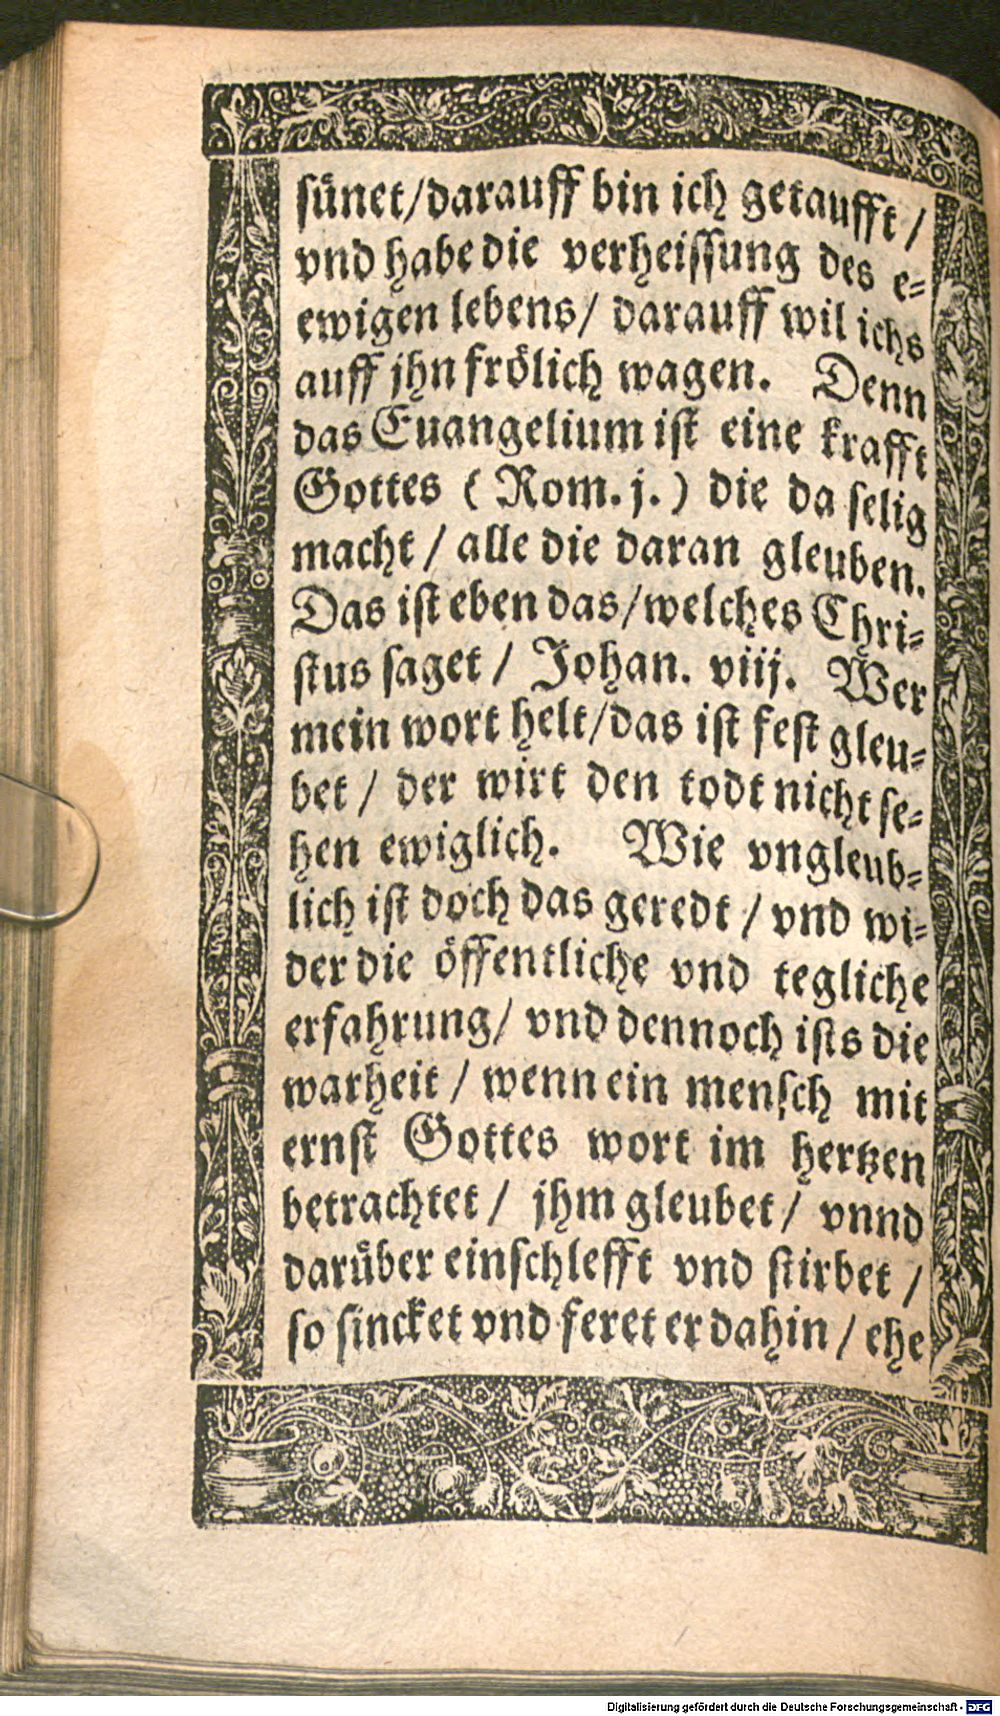 sünet/darauff bin ich getaufft/
vnd habe die verheissung des e-
ewigen lebens/ darauff wil ichs
auff jhn frölich wagen. Denn
das Euangelium ist eine krafft
Gottes (Rom. j.) die da selig
macht/ alle die daran gleuben.
Das ist eben das/welches Chri-
stus saget/ Johan. viij. Wer
mein wort helt/das ist fest gleu-
bet/ der wirt den todt nicht se-
hen ewiglich. Wie vngleub-
lich ist doch das geredt/ vnd wi-
der die öffentliche vnd tegliche
erfahrung/ vnd dennoch ists die
warheit/ wenn ein mensch mit
ernst Gottes wort im hertzen
betrachtet/ jhm gleubet/ vnnd
darüber einschlefft vnd stirbet/
so sincket vnd feret er dahin/ ehe
Digitalisierung gefördert durch die Deutsche Forschungsgemeinschaft - DFG